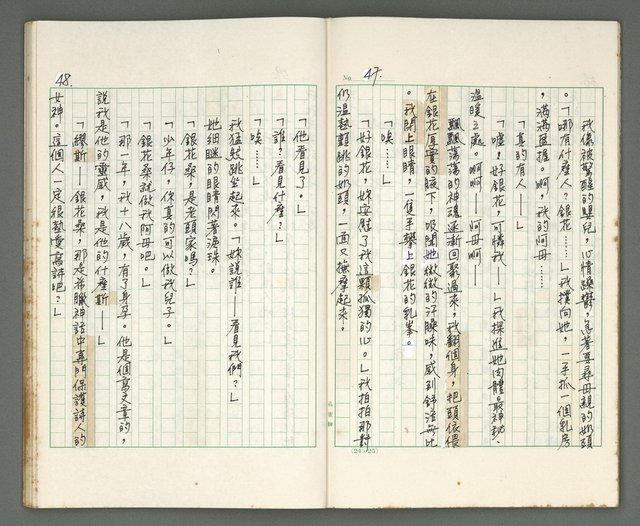 No. 47.
我像被驚醒的嬰兒，心情躁鬱，急著要尋母親的奶頭
。「哪有什麼人？銀花……」我撲向她，一手抓一個乳房
，滿滿盈握。啊，我的阿母……
「真的有人──」
「噓，好銀花，可憐我──」我探進她肉體最神秘、
溫暖之處。啊啊──阿母啊──
飄飄蕩蕩的神魂逐漸回聚過來，我翻個身，把頭依偎
在銀花厚實的腋下，吸聞她微微的汗臊味，感到舒泣無比
。我閉上眼睛，隻手攀上銀花的乳峯。
「唉……」
「好銀花，妳安慰了我這顆孤獨的心。」我拍拍那對
仍溫熱顫跳的奶頭，一面又撫摩起來。
(24×25)
48.
「他看見了。」
「唉……」
「誰？看見什麼？」
我猛然跳坐起來。「妳說誰──看見我們？」
她細瞇的眼睛閃著淚珠。
「銀花桑，是老頭家嗎？」
「少年仔，你真的可以做我兒子。」
「銀花桑就做我阿母吧。」
「那一年，我十八歲，有了身孕。他是個寫文章的，
說我是他的靈感，我是他的什麼斯──」
「繆斯──銀花桑，那是希臘神話中專門保護詩人的
女神。這個人一定很熱愛寫詩吧？」